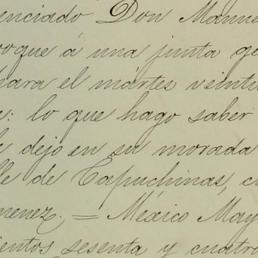 enciado Don Manue
oque á una junta ge
para el mártes veinti
e: lo que hago saber
le dejo en su morada
lle de Capuchinas, c
menez. = Mexico May
ientos sesenta y cuatro